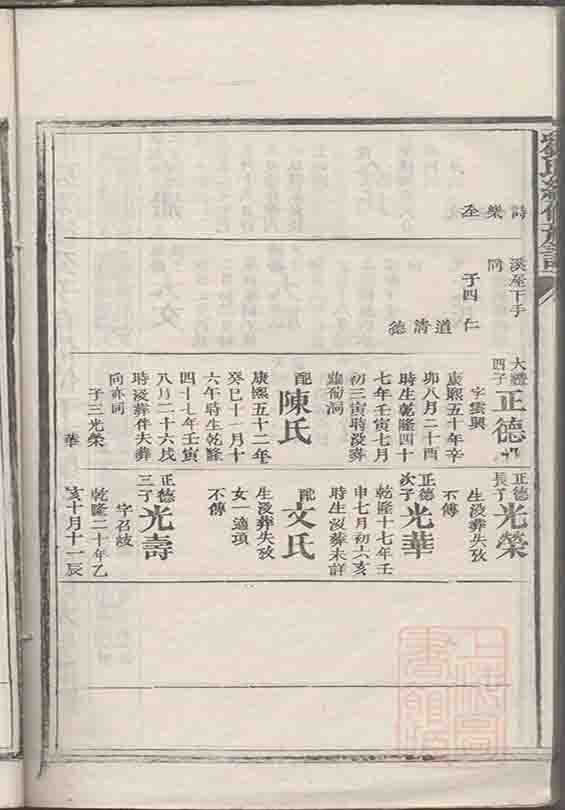 劉氏續修族譜
詩 樂 丕
溪屋下手
向
子四 仁
道 清 德
大禮四子 正德
字雲興
康熙五十年辛
卯八月二十酉
時生乾隆四十
七年壬寅七月
初三寅時沒葬
葡萄洞
配 陳氏
康熙五十二年
癸巳十一月十
六午時生乾隆
四十七年壬寅
八月二十六戌
時沒葬伴夫葬
向亦同
子三光榮
華
正德長子 光榮
生沒葬失攷
不傳
正德次子 光華
乾隆十七年壬
申七月初六亥
時生沒葬未詳
配 文氏
生沒葬失攷
女一適項
不傳
正德三子 光壽
字召岐
乾隆二十年乙
亥十月十一辰